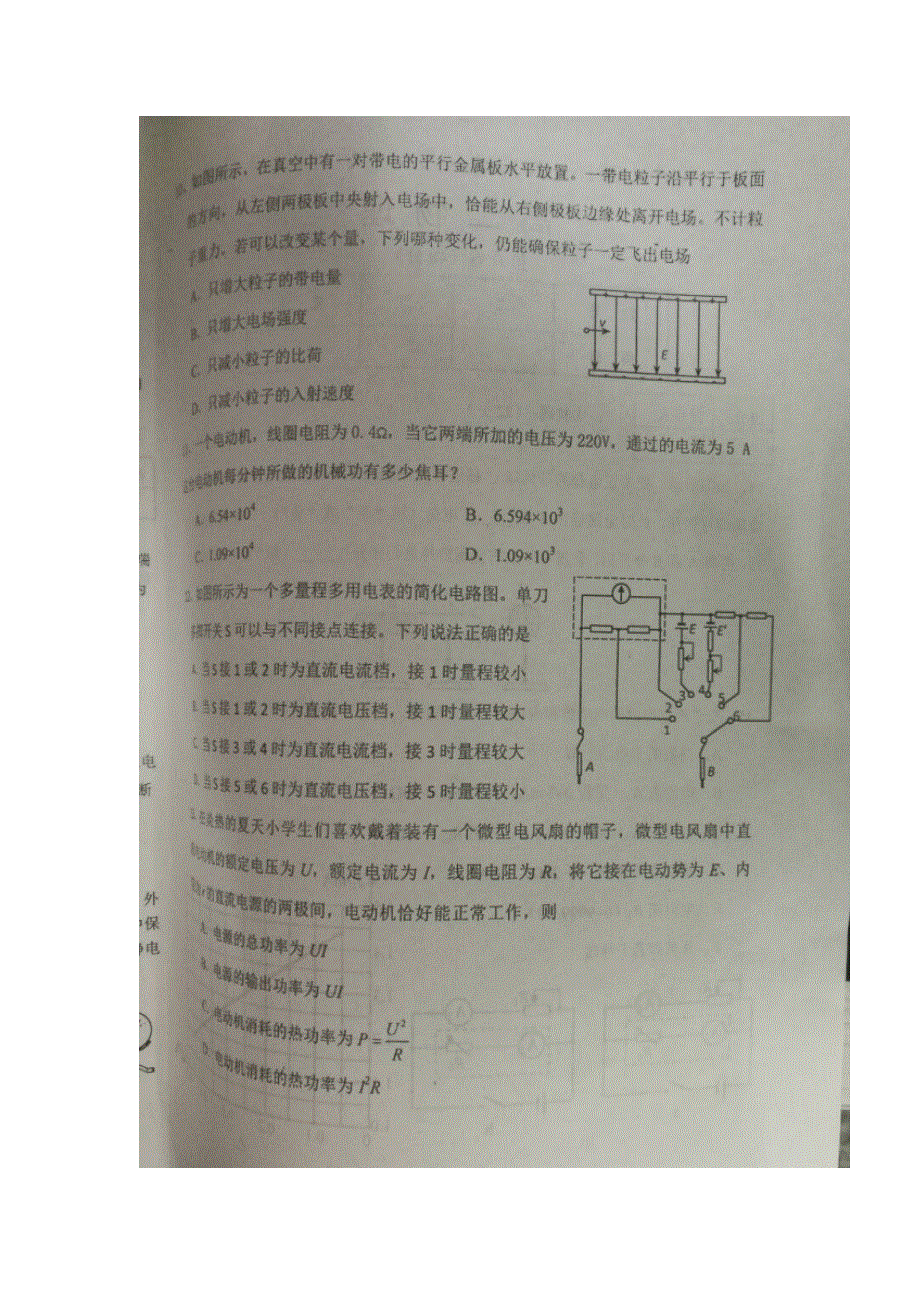 如图所示，在真空中有一对带电的平行金属板水平放置。一带电粒子沿平行于板面
的方向，从左侧两极板中央射入电场中，恰能从右侧极板边缘处离开电场。不计粒
子重力，若可以改变某个量，下列哪种变化，仍能确保粒子一定飞出电场
A. 只增大粒子的带电量
B. 只增大电场强度
C. 只减小粒子的比荷
D. 只减小粒子的入射速度
v
E
一个电动机，线圈电阻为0.4Ω，当它两端所加的电压为220V，通过的电流为5 A
电动机每分钟所做的机械功有多少焦耳？
A. 6.54×10⁴
B. 6.594×10³
C. 1.09×10⁴
D. 1.09×10³
12. 如图所示为一个多量程多用电表的简化电路图。单刀
开关S可以与不同接点连接。下列说法正确的是
A.当S接1或2时为直流电流档，接1时量程较小
B.当S接1或2时为直流电压档，接1时量程较大
C.当S接3或4时为直流电流档，接3时量程较大
D.当S接5或6时为直流电压档，接5时量程较小
E
E'
1
2
3
4
5
6
A
B
的夏天小学生们喜欢戴着装有一个微型电风扇的帽子，微型电风扇中直
机的额定电压为U，额定电流为I，线圈电阻为R，将它接在电动势为E、内
的直流电源的两极间，电动机恰好能正常工作，则
A. 电源的总功率为UI
B. 电源的输出功率为UI
C. 电动机消耗的热功率为P=U²/R
D. 电动机消耗的热功率为I²R
端
电
断
外
保
电